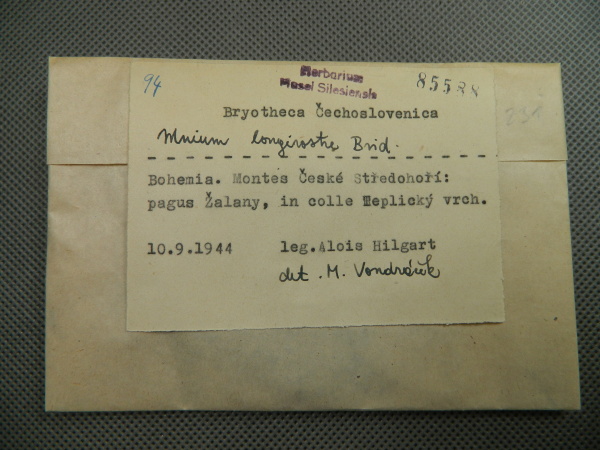 94
Herbarium
Musei Silesiensis
85588
Bryotheca Čechoslovenica
Mnium longirostre Brid.
Bohemia. Montes České Středohoří:
pagus Žalany, in colle Teplický vrch.
10.9.1944 leg.Alois Hilgart
det. M. Vondráček